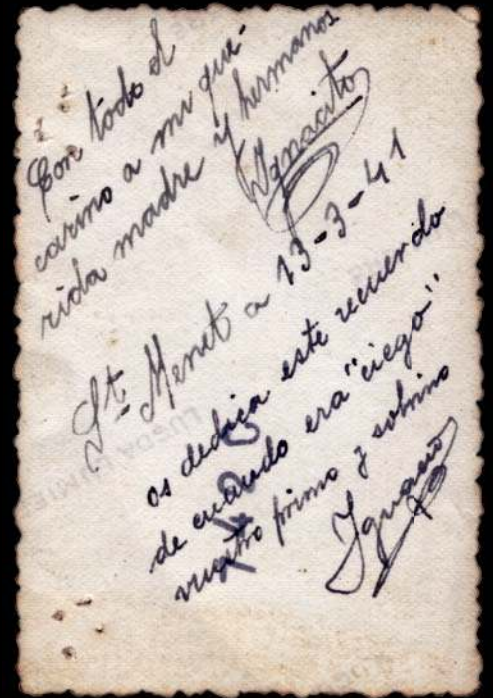 Con todo el
carino a mi que-
rida madre y hermanos
Ygnacito
St. Menet a 13-3-41
os dedica este recuerdo
de cuando era "ciego"
vuestro primo y sobrino
Ygnacio